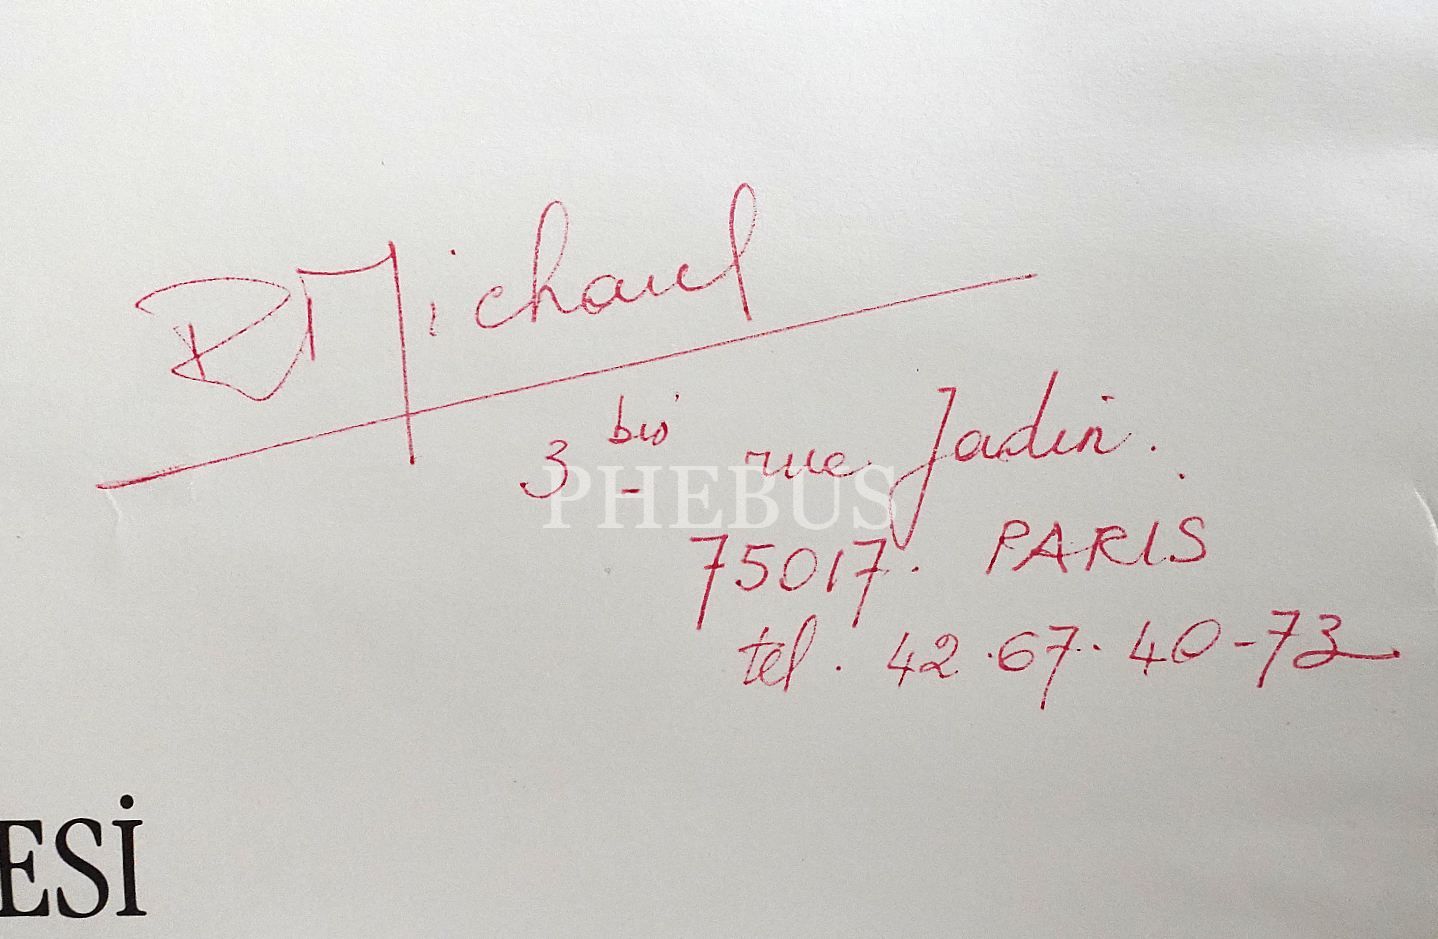 R Michaud
3 bis rue Jadin.
PHEBUS
75017. PARIS
tél. 42.67.40-73
ESİ